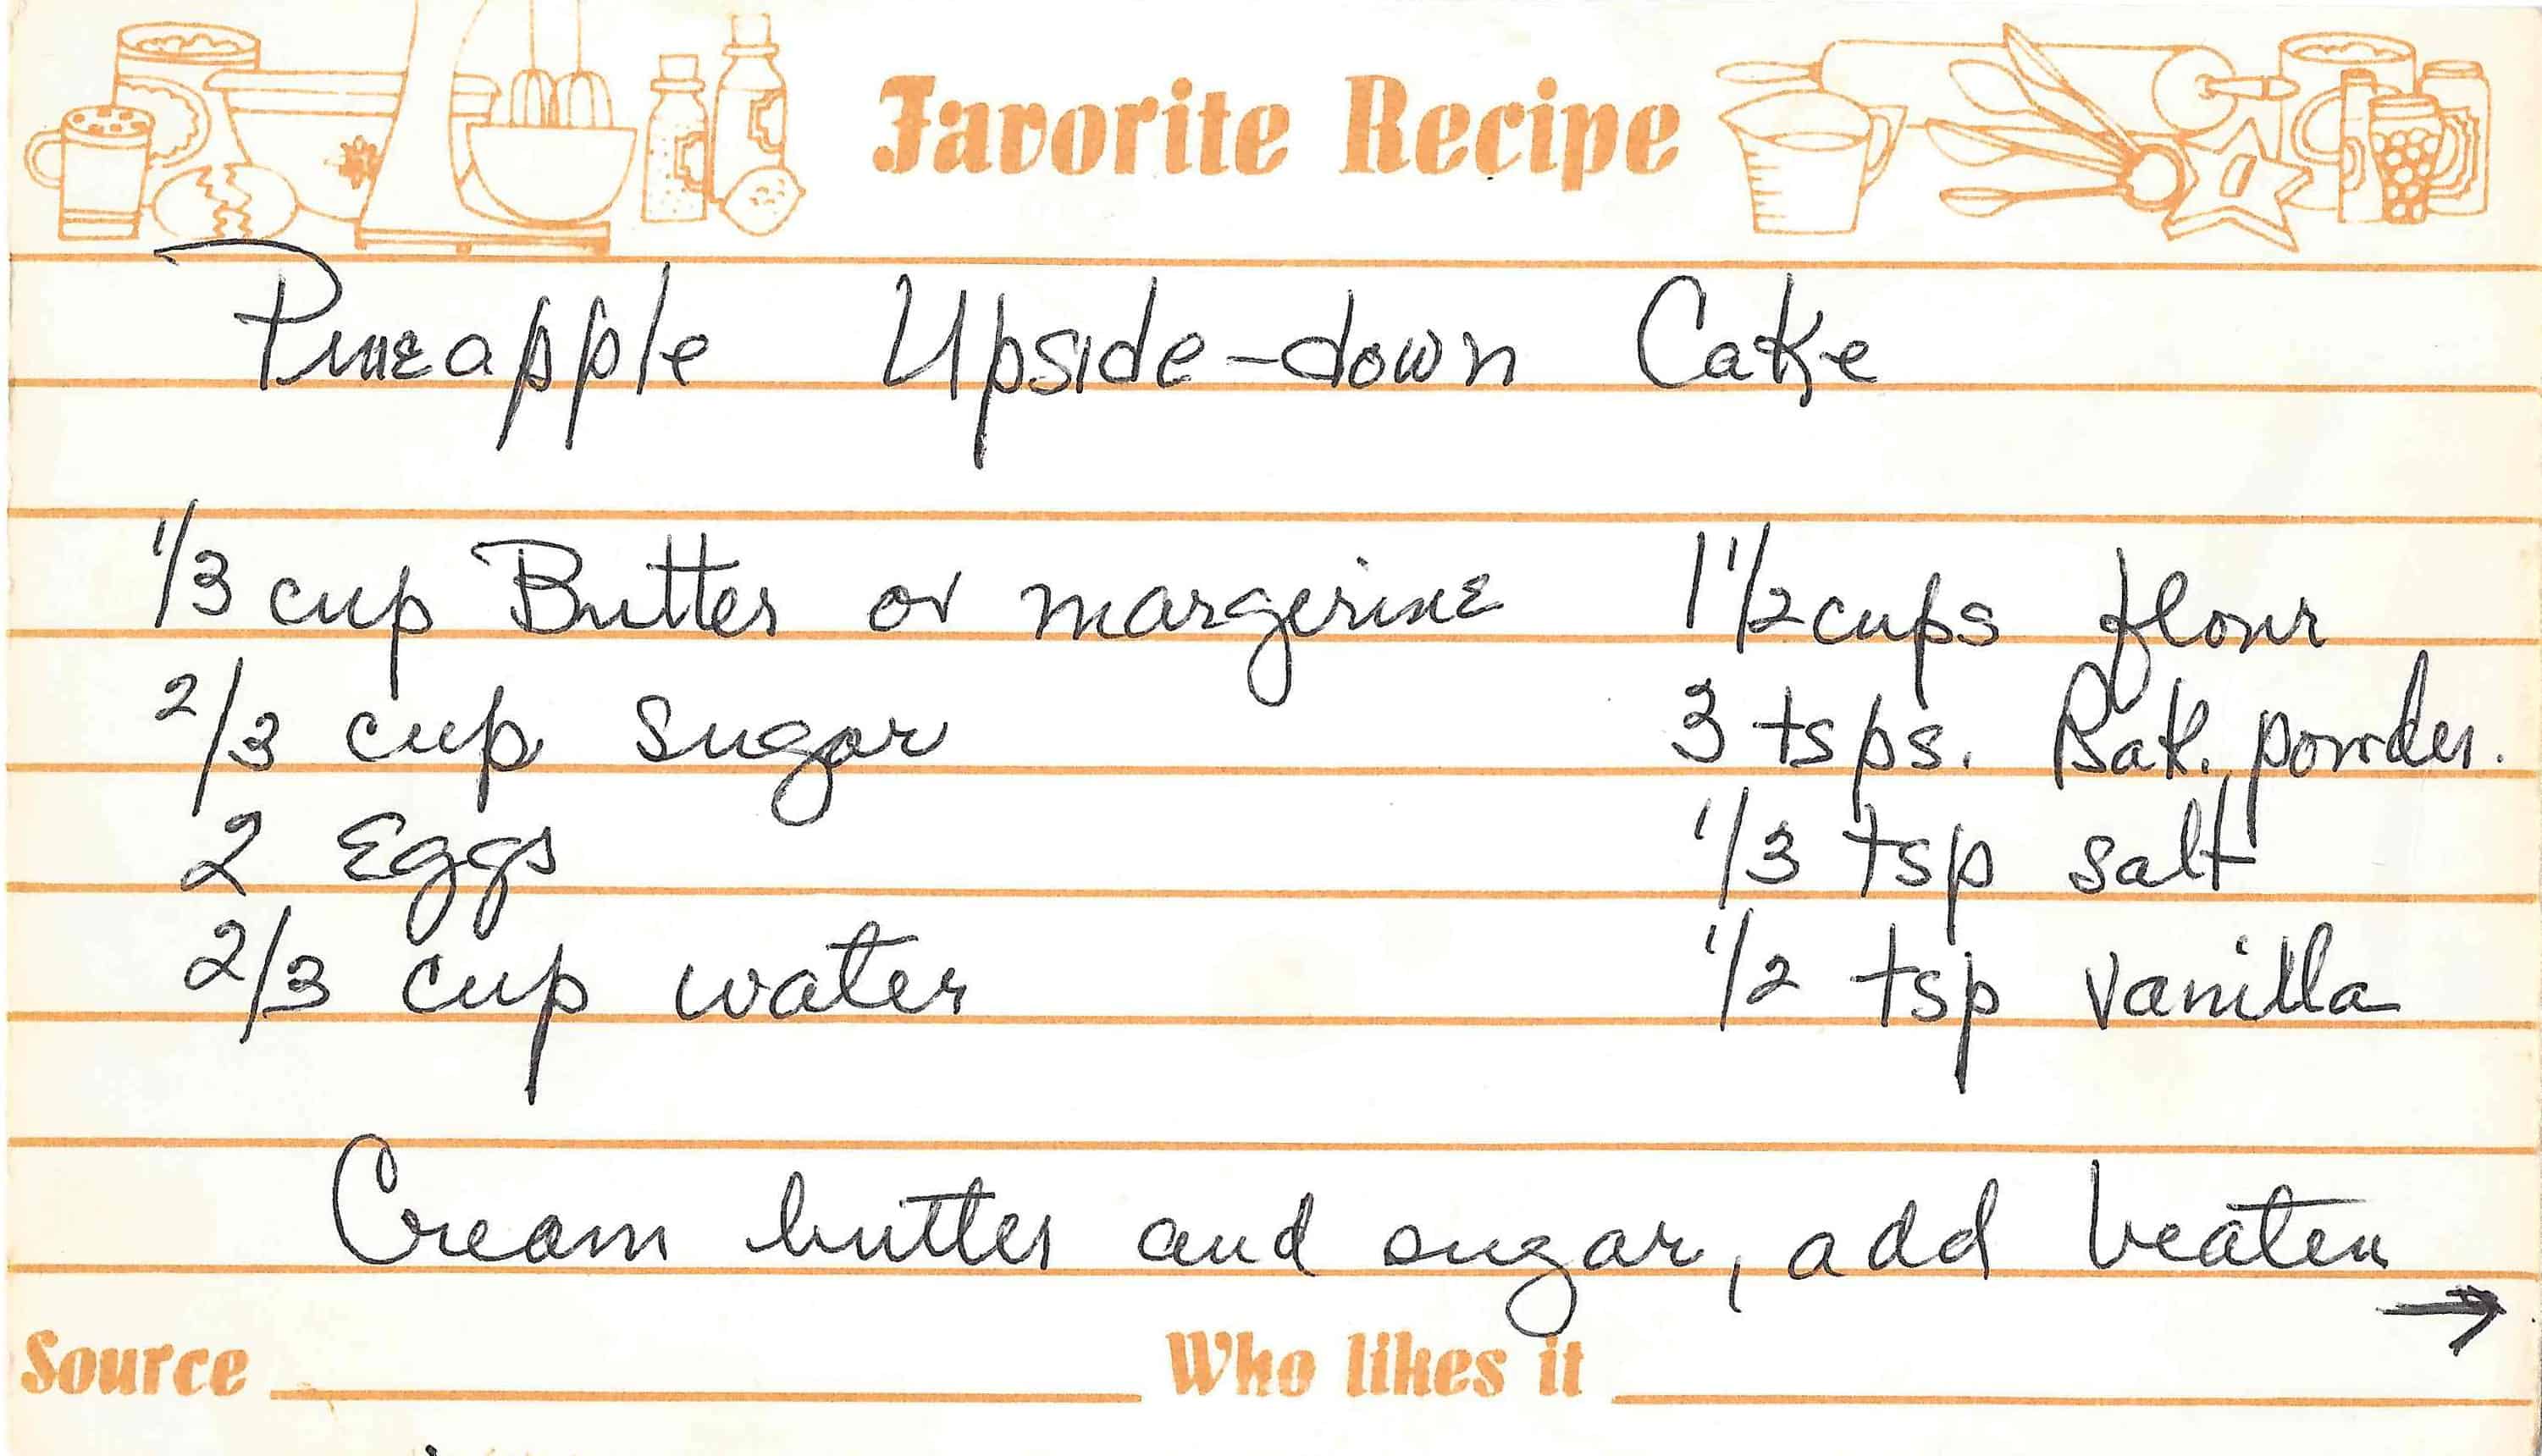 Favorite Recipe
Pineapple Upside-down Cake
1/3 cup Butter or margerine 1 1/2 cups flour
2/3 cup sugar 3 tsps. Bak. powder.
2 Eggs 1/3 tsp salt
2/3 cup water 1/2 tsp vanilla
Cream butter and sugar, add beaten
→
Source Who likes it